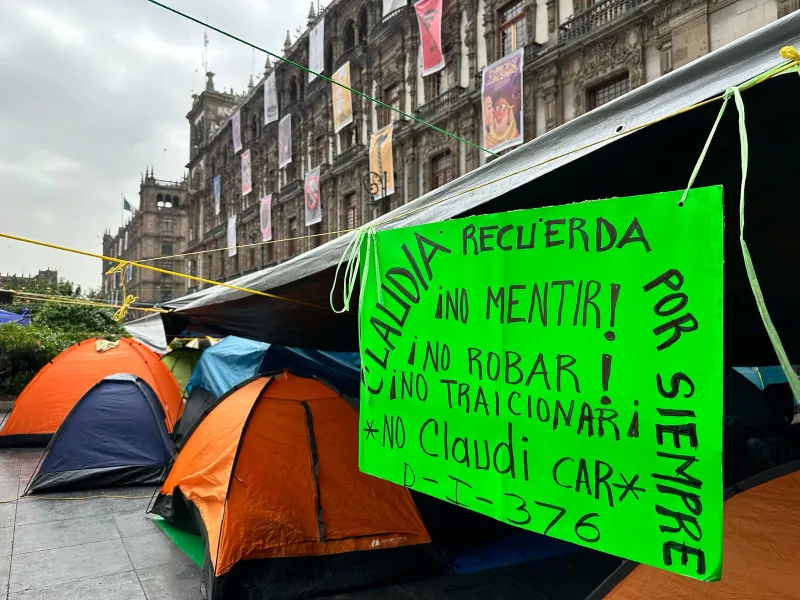 CLAUDIA RECUERDA
¡NO MENTIR!
¡NO ROBAR!
¡NO TRAICIONAR¡
*NO Claudi CAR*
D-I-376
POR SIEMPRE